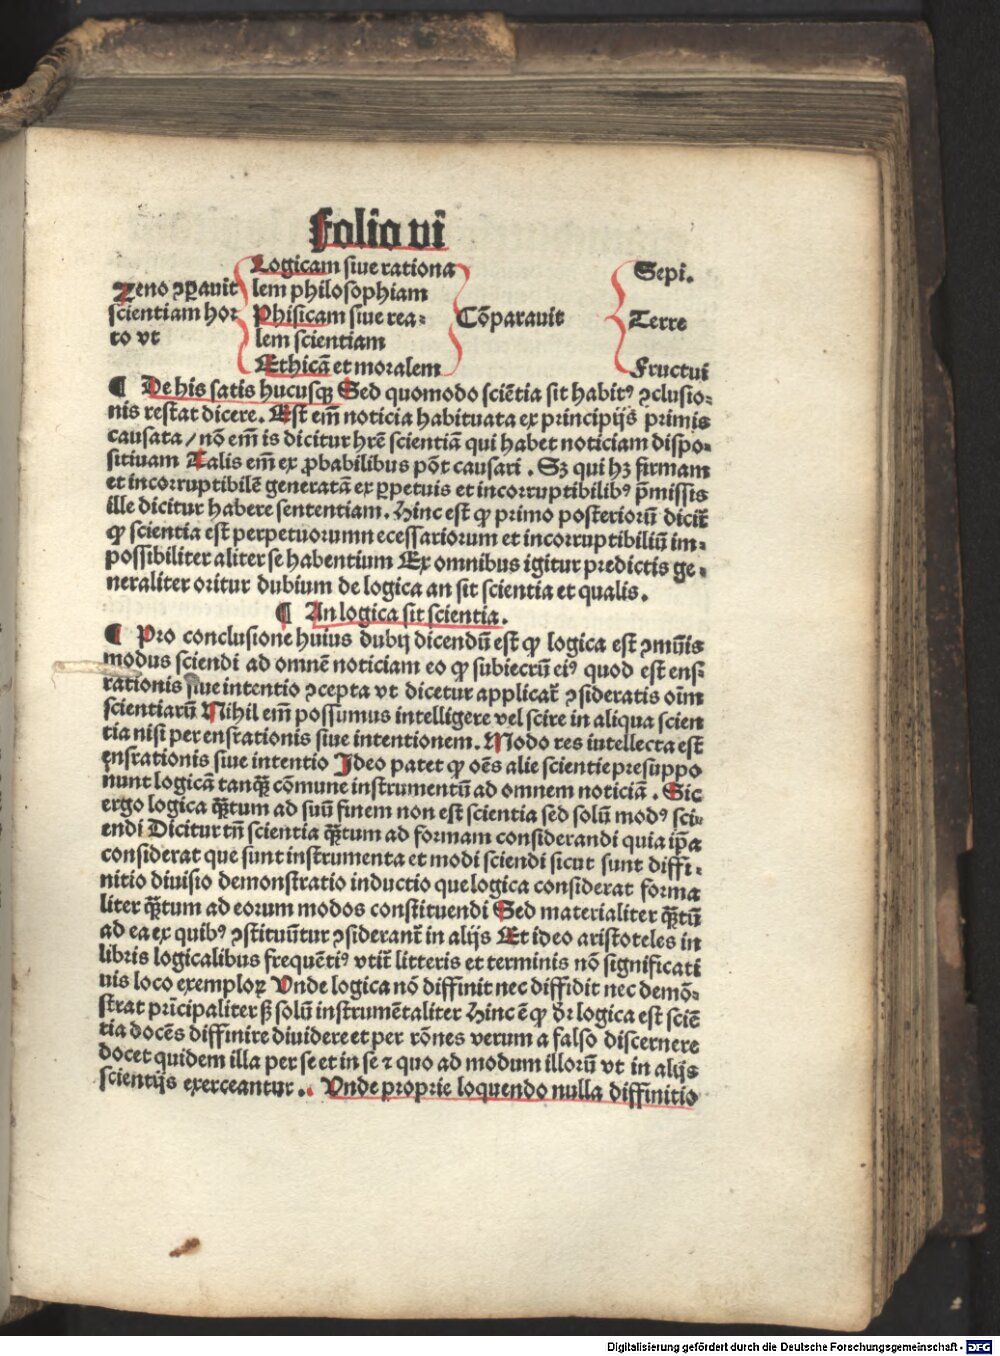 folio vi
Zeno ↄꝑauit
scientiam hor
to vt
Logicam siue rationa
lem philosophiam
Phisicam siue rea⸗
lem scientiam
Ethicā et moralem
Cōparauit
Sepi.
Terre
Fructui
¶ De his satis hucusqꝫ Sed quomodo sciētia sit habitꝰ ↄclusio⸗
nis restat dicere. Est em̄ noticia habituata ex principijs primis
causata / nō em̄ is dicitur hr̄e scientiā qui habet noticiam dispo⸗
sitiuam Talis em̄ ex ꝓbabilibus pōt causari. Sꝫ qui hꝫ firmam
et incorruptibilē generatā ex ꝑpetuis et incorruptibilibꝰ p̄missis
ille dicitur habere sententiam. Hinc est ꝙ primo posterioꝛū dicit̄
ꝙ scientia est perpetuorumn ecessariorum et incorruptibiliū im⸗
possibiliter aliter se habentium Ex omnibus igitur predictis ge⸗
neraliter oritur dubium de logica an sit scientia et qualis.
¶ An logica sit scientia.
¶ Pro conclusione huius dubij dicendū est ꝙ logica est ↄmūis
modus sciendi ad omnē noticiam eo ꝙ subiectū eiꝰ quod est ens⸗
rationis siue intentio ↄcepta vt dicetur applicat̄ ↄsideratis oīm
scientiarū Nihil em̄ possumus intelligere vel scire in aliqua scien
tia nisi per ensrationis siue intentionem. Modo res intellecta est
ensrationis siue intentio Ideo patet ꝙ oēs alie scientie presuppo
nunt logicā tanqͣꝫ cōmune instrumentū ad omnem noticiā. Sic
ergo logica qͣꝫtum ad suū finem non est scientia sed solū modꝰ sci⸗
endi Dicitur tn̄ scientia qͣꝫtum ad formam considerandi quia ip̄a
considerat que sunt instrumenta et modi sciendi sicut sunt diffi⸗
nitio diuisio demonstratio inductio que logica considerat forma
liter qͣꝫtum ad eorum modos constituendi Sed materialiter qͣꝫtū
ad ea ex quibꝰ ↄstituūtur ↄsiderant̄ in alijs Et ideo aristoteles in
libris logicalibus frequētiꝰ vtit̄ litteris et terminis nō significati
uis loco exemploꝝ Vnde logica nō diffinit nec diffidit nec demō⸗
strat prīcipaliter ß solū instrumētaliter Hinc ē ꝙ dr̄ logica est sciē
tia docēs diffinire diuidere et per rōnes verum a falso discernere
docet quidem illa per se et in se ⁊ quo ad modum illorū vt in alijs
scientijs exerceantur.. Vnde proprie loquendo nulla diffinitio
Digitalisierung gefördert durch die Deutsche Forschungsgemeinschaft - DFG